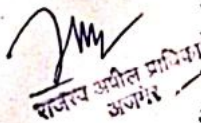 राजस्व अपील प्राधिका
अजमेर